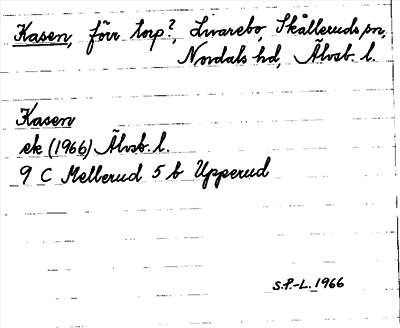 Kasen, förr torp?, Livarebo, Skålleruds sn,
Nordals hd, Älvsb. l.
Kasen
ek (1966) Älvsb. l.
9 C Mellerud 5 b Upperud
S.P.-L. 1966